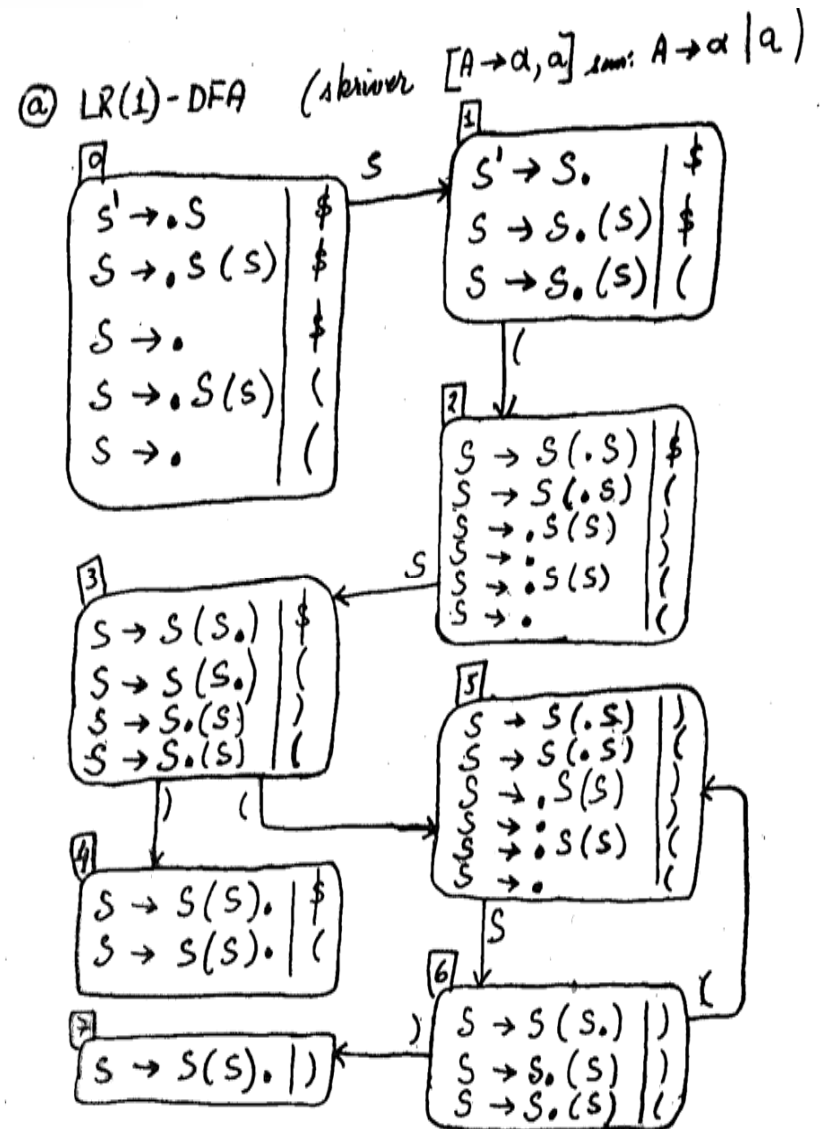 ⓐ LR(1)-DFA (skriver [A→α,a] som: A→α | a)
0
S' → .S | $
S → .S(S) | $
S → . | $
S → .S(S) | (
S → . | (
S
1
S' → S. | $
S → S.(S) | $
S → S.(S) | (
(
2
S → S(.S) | $
S → S(.S) | (
S → .S(S) | )
S → . | )
S → .S(S) | (
S → . | (
S
3
S → S(S.) | $
S → S(S.) | (
S → S.(S) | )
S → S.(S) | (
) (
4
S → S(S). | $
S → S(S). | (
5
S → S(.S) | )
S → S(.S) | (
S → .S(S) | )
S → . | )
S → .S(S) | (
S → . | (
S
6
S → S(S.) | )
S → S.(S) | )
S → S.(S) | (
(
)
7
S → S(S). | )